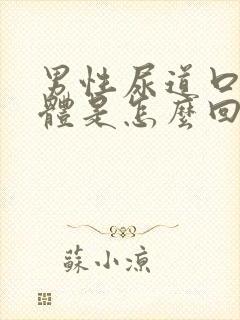 男性尿道口
體是怎麼回
蘇小涼